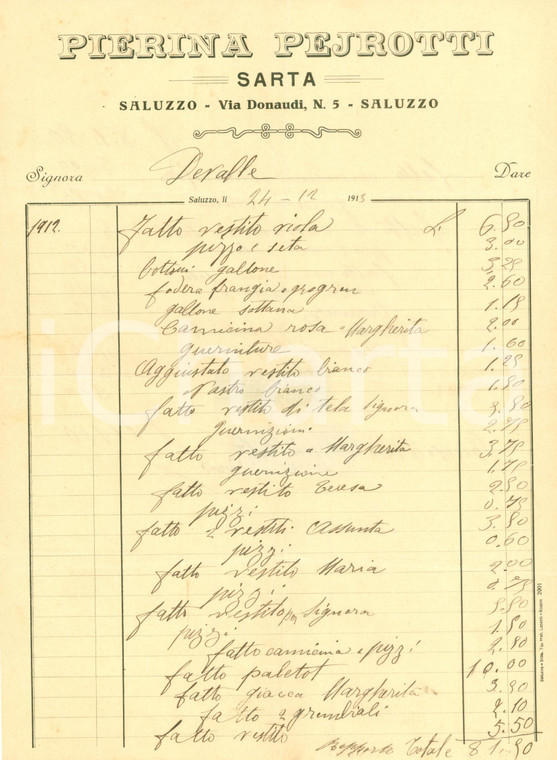 PIERINA PEJROTTI
SARTA
SALUZZO - Via Donaudi, N. 5 - SALUZZO
Signora Devalle Dare
Saluzzo, li 24 - 12 1913
1912. Fatto vestito viola L. 6.50
pizzo e seta 3.00
Bottoni gallone 3.25
fodera frangia e grogren 2.60
gallone sottana 1.15
Camicina rosa Margherita 2.00
guerniture 1.60
Aggiustato vestito bianco 1.25
Nastro bianco 1.50
fatto vestito di tela Signora 3.50
guernizioni 2.75
fatto vestito a Margherita 3.75
guernizione 1.75
fatto vestito Teresa 2.50
pizzi 0.75
fatto 2 vestiti Assunta 3.50
pizzi 0.60
fatto vestito Maria 2.00
pizzi 0.75
fatto vestito per Signora 5.50
pizzi 1.50
fatto camicina e pizzi 2.50
fatto paletot 10.00
fatto giacca Margherita 3.50
fatto 2 grembiali 2.10
fatto vestito 5.50
Totale 81.50